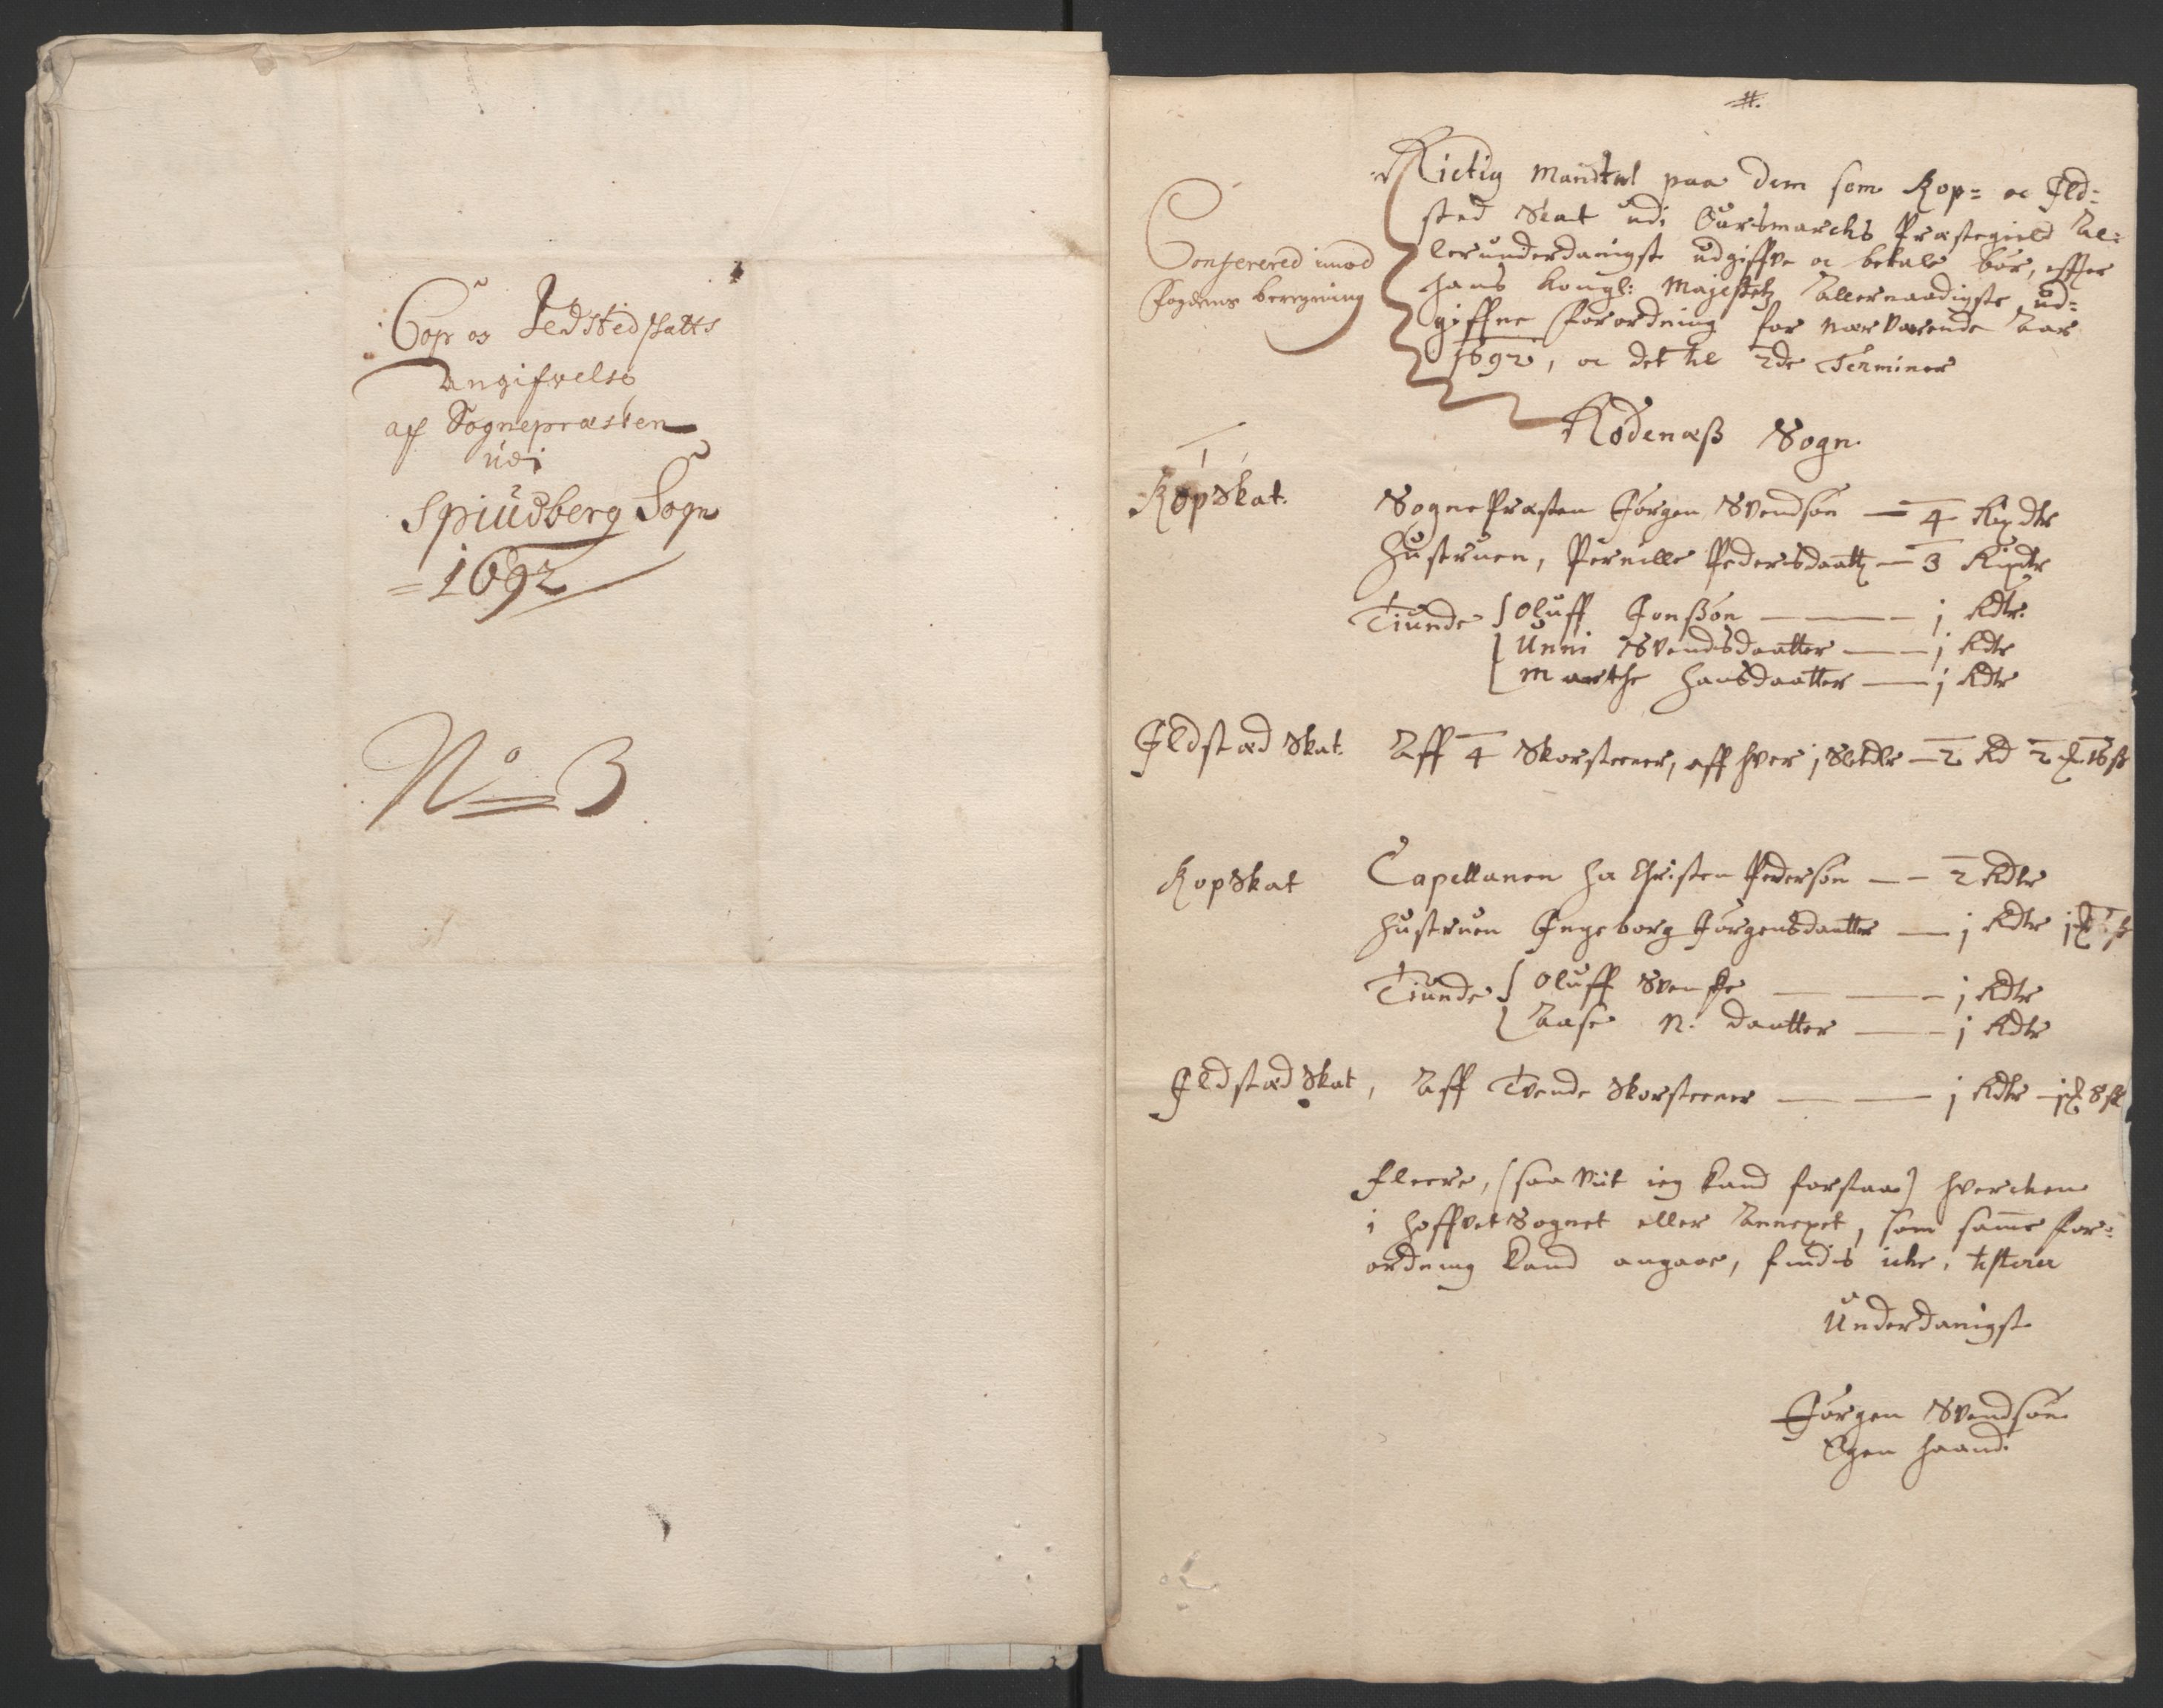 Cop og Ildstedskatts
angifvelse
aff Sognepræsten
udi
Spiudberg Sogn
1692
No 3
Rictig Mandtal paa dem som Kop= oc Ild=
sted Skat udi Öursmarchs Præstegield Al=
lerunderdanigst udgiffve oc betale bör, effter
hans Kongl: Majestetz Allernaadigste ud=
giffne forordning for nærværende Aar
1692, oc det til 2de Terminer
Confereret imod
fogdens beregning
Rödenæß Sogn
Kopskat.
SognePræsten Jörgen Svendsön — 4 Rixdlr
Hustruen, Pernille Pedersdaattr — 3 Rixdlr
Tiunde Oluff Jonßön — 1 Rdlr
Unni Svendsdaatter — 1 Rdlr
Marthe Hansdaatter — 1 Rdlr
Ildstæd Skat. Aff 4 Skorsteener, aff hver 1 Sletdlr — 2 Rd 2 16 sk
Kopskat
Capellanen Hr Christen Pedersön — 2 Rdlr
Hustruen Ingeborg Jörgensdaatter — 1 Rdlr
Tiunde Oluff Svenske — 1 Rdlr
Aase N. daatter — 1 Rdlr
Ildstæd Skat, Aff Tvende Skorsteener — 1 Rdlr 8 sk
fleere, (saa viit ieg kand forstaae) hverchen
i HoffvetSognet eller Annexet, som samme for=
ordning kand angaae, findis icke, testerer
Underdanigst
Jörgen Svendsön
Egen haand.